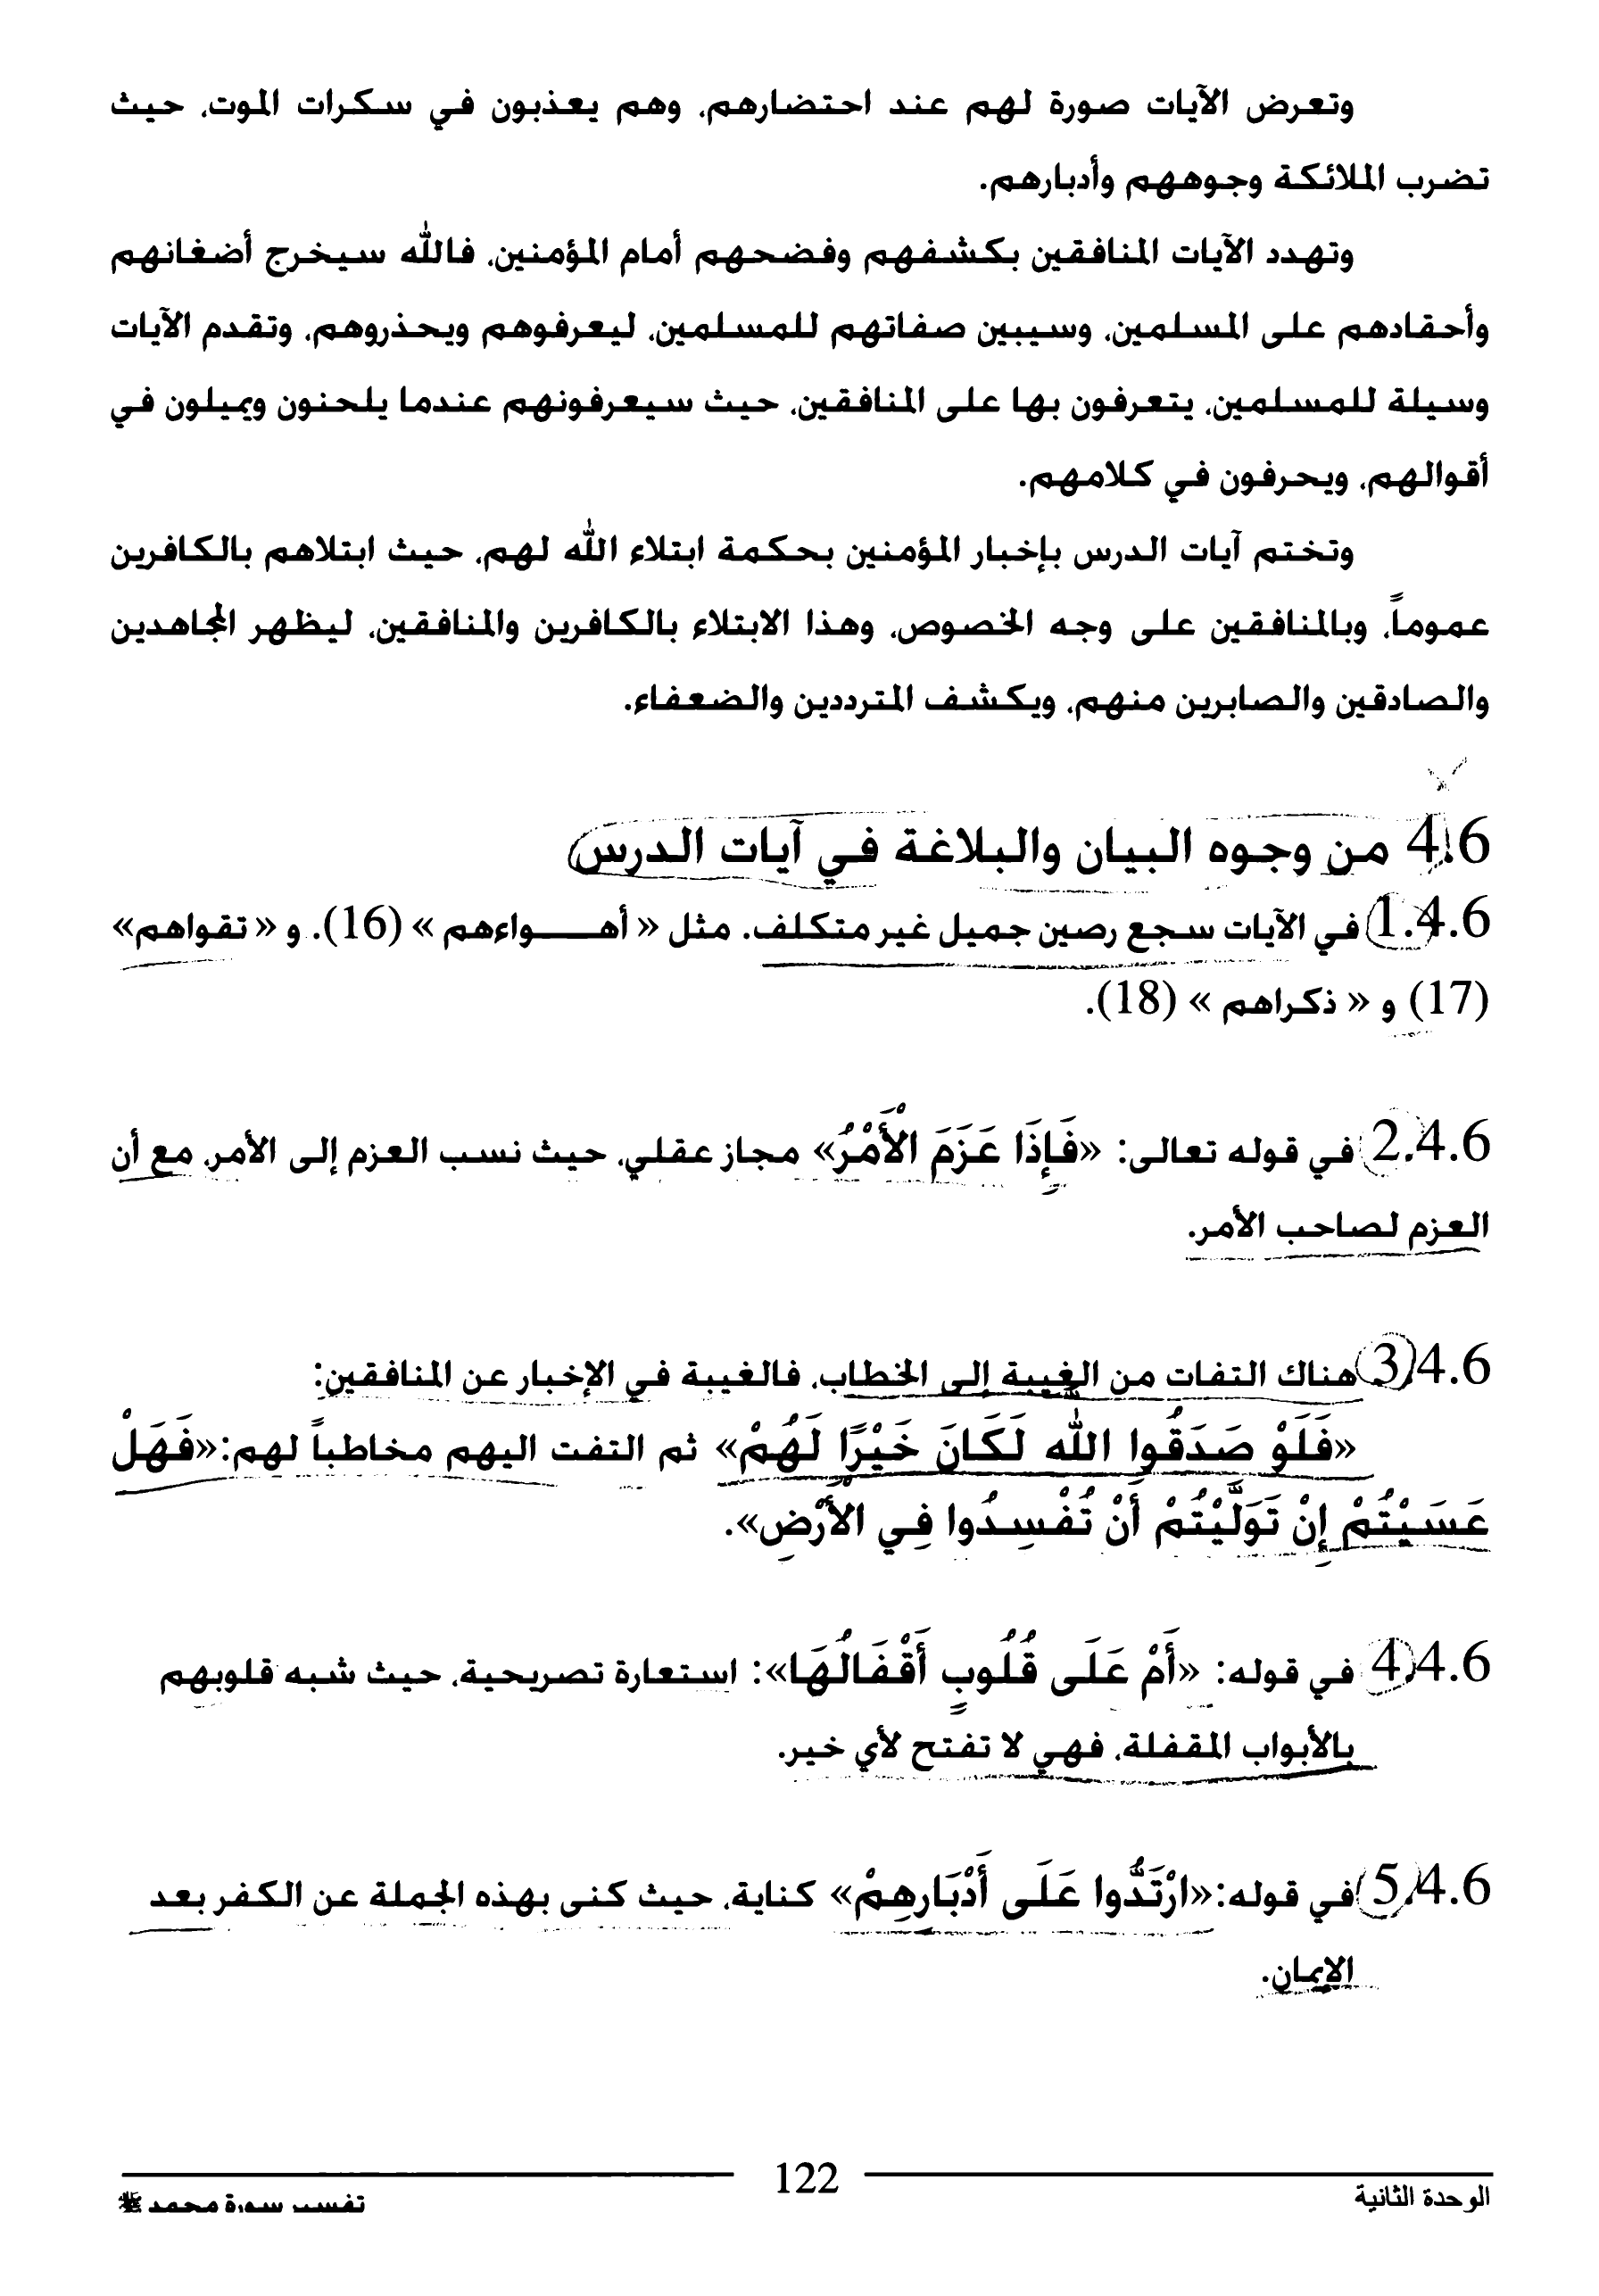 وتعرض الآيات صورة لهم عند احتضارهم، وهم يعذبون في سكرات الموت، حيث
تضرب الملائكة وجوههم وأدبارهم.
وتهدد الآيات المنافقين بكشفهم وفضحهم أمام المؤمنين، فالله سيخرج أضغانهم
وأحقادهم على المسلمين، وسيبين صفاتهم للمسلمين، ليعرفوهم ويحذروهم، وتقدم الآيات
وسيلة للمسلمين، يتعرفون بها على المنافقين، حيث سيعرفونهم عندما يلحنون ويميلون في
أقوالهم، ويحرفون في كلامهم.
وتختم آيات الدرس بإخبار المؤمنين بحكمة ابتلاء الله لهم، حيث ابتلاهم بالكافرين
عموماً، وبالمنافقين على وجه الخصوص، وهذا الابتلاء بالكافرين والمنافقين، ليظهر المجاهدين
والصادقين والصابرين منهم، ويكشف المترددين والضعفاء.
4.6 من وجوه البيان والبلاغة في آيات الدرس
1.4.6 في الآيات سجع رصين جميل غير متكلف. مثل « أهـــواءهم » (16). و « تقواهم»
(17) و « ذكراهم » (18).
2.4.6 في قوله تعالى: «فَإِذَا عَزَمَ الْأَمْرُ» مجاز عقلي، حيث نسب العزم إلى الأمر، مع أن
العزم لصاحب الأمر.
3.4.6 هناك التفات من الغيبة إلى الخطاب، فالغيبة في الإخبار عن المنافقين:
«فَلَوْ صَدَقُوا الله لَكَانَ خَيْرًا لَهُمْ» ثم التفت اليهم مخاطباً لهم:«فَهَلْ
عَسَيْتُمْ إِنْ تَوَلَّيْتُمْ أَنْ تُفْسِدُوا فِي الأَرْضِ».
4.4.6 في قوله: «أَمْ عَلَى قُلُوبٍ أَقْفَالُهَا»: استعارة تصريحية، حيث شبه قلوبهم
بالأبواب المقفلة، فهي لا تفتح لأي خير.
5.4.6 في قوله:«ارْتَدُّوا عَلَى أَدْبَارِهِمْ» كناية، حيث كنى بهذه الجملة عن الكفر بعد
الإيمان.
122
الوحدة الثانية
تفسير سورة محمد ﷺ